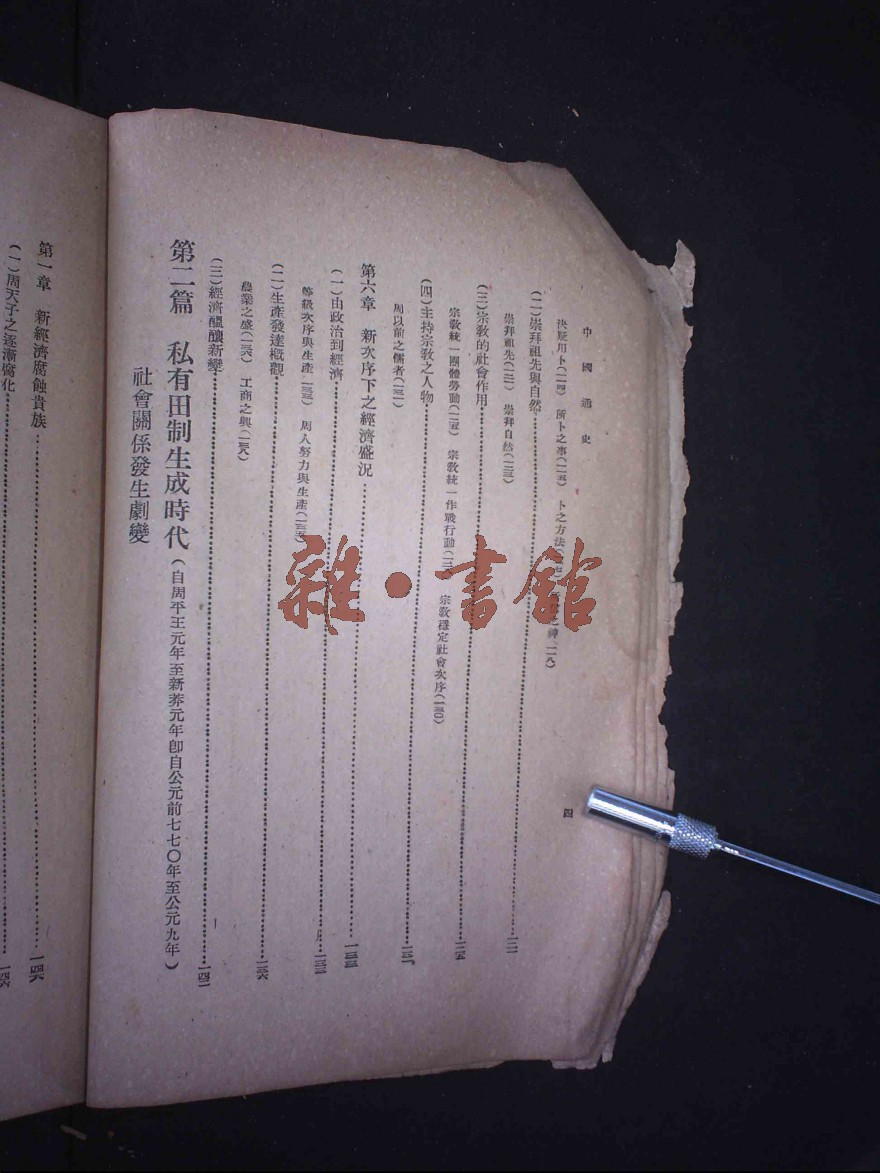 中國通史
四
決疑用卜(一一四) 所卜之事(一一五) 卜之方法 之神(一一八)
(二)崇拜祖先與自然……一二一
崇拜祖先 崇拜自然
(三)宗敎的社會作用……一二五
宗敎統一團體勞動(一二五) 宗敎統一作戰行動 宗敎穩定社會次序(一三〇)
(四)主持宗敎之人物
周以前之儒者(一三一)
第六章 新次序下之經濟盛況……一三三
(一)由政治到經濟……一三三
等級次序與生產(一三三) 周人努力與生產(一三五)
(二)生產發達概觀……一三六
農業之盛(一三六) 工商之興(一三八)
(三)經濟醞釀新變……一四二
第二篇 私有田制生成時代(自周平王元年至新莽元年卽自公元前七七〇年至公元九年)
社會關係發生劇變
第一章 新經濟腐蝕貴族……一四六
(一)周天子之逐漸腐化……一四六
雜·書館